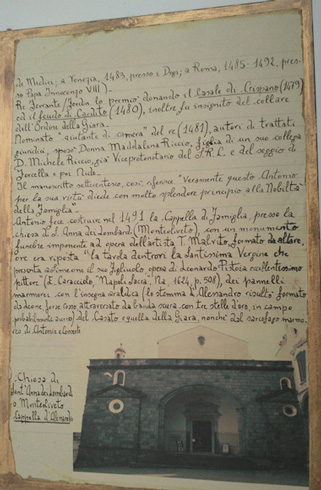 de Medici; a Venezia, 1483, presso i Dogi; a Roma, 1485-1492, pres-
so Papa Innocenzo VIII).
Re Ferrante lo premiò donando il Casale di Crispano (1479)
ed il feudo di Cardito (1480), inoltre fu insignito del collare
dell'Ordine della Giara.
Nominato "aiutante di camera" del re (1481), autore di trattati
giuridici, sposò Donna Maddalena Riccio, figlia di un suo collega
D. Michele Riccio, già Viceprotonotario del S.R.C. e del seggio di
Forcella e poi Nido.
Il manoscritto settecentesco, così, riferisce "Veramente questo Antonio
per la sua virtù diede con molto splendore principio alla Nobiltà
della Famiglia".
Antonio fece costruire nel 1491 la Cappella di Famiglia, presso la
chiesa di S. Anna dei Lombardi (Monteoliveto), con un monumento
funebre imponente ad opera dell'artista T. Malvito formato da altare,
ove era riposta "la tavola dentrovi la Santissima Vergine che
presenta al Simeone il suo Figliuolo opera di Leonardo Pistoia eccellentissimo
pittore" (E. Caracciolo, "Napoli Sacra", Na, 1624, p. 508), dei pannelli
marmorei con l'insegna araldica (lo stemma D'Alessandro risulta formato
da leone, forse rosso attraversato da banda scura con tre stelle d'oro, in campo
probabilmente azzurro) del Casato e quella della Giara, nonché dal sarcofago marmo
reo di Antonio e consorte
Chiesa di
Sant'Anna dei Lombardi
o Monteoliveto
Cappella d'Alessandro